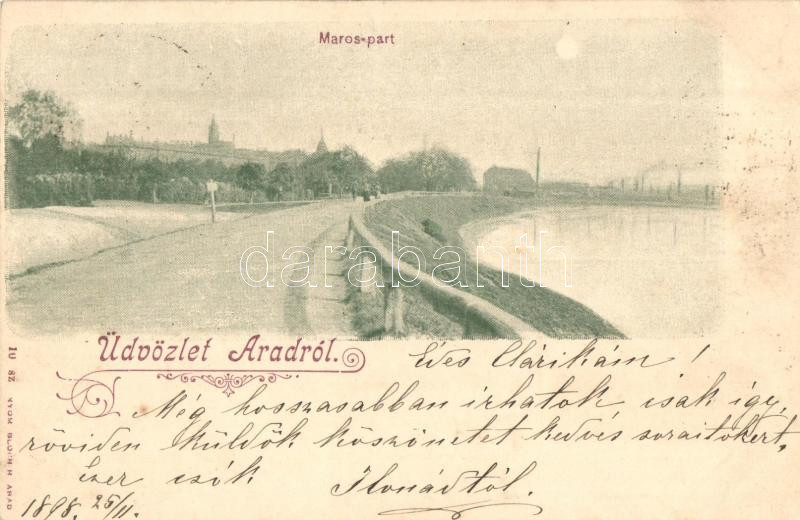 Maros-part
darabanth
Üdvözlet Aradról.
Édes Clárikám!
Még hosszasabban írhatok csak így
röviden küldök köszönetet kedves soraitokért,
Ezer csók Ilonádtól.
1898. 25/11.
10 sz. NYOM. BLOCH H. ARAD